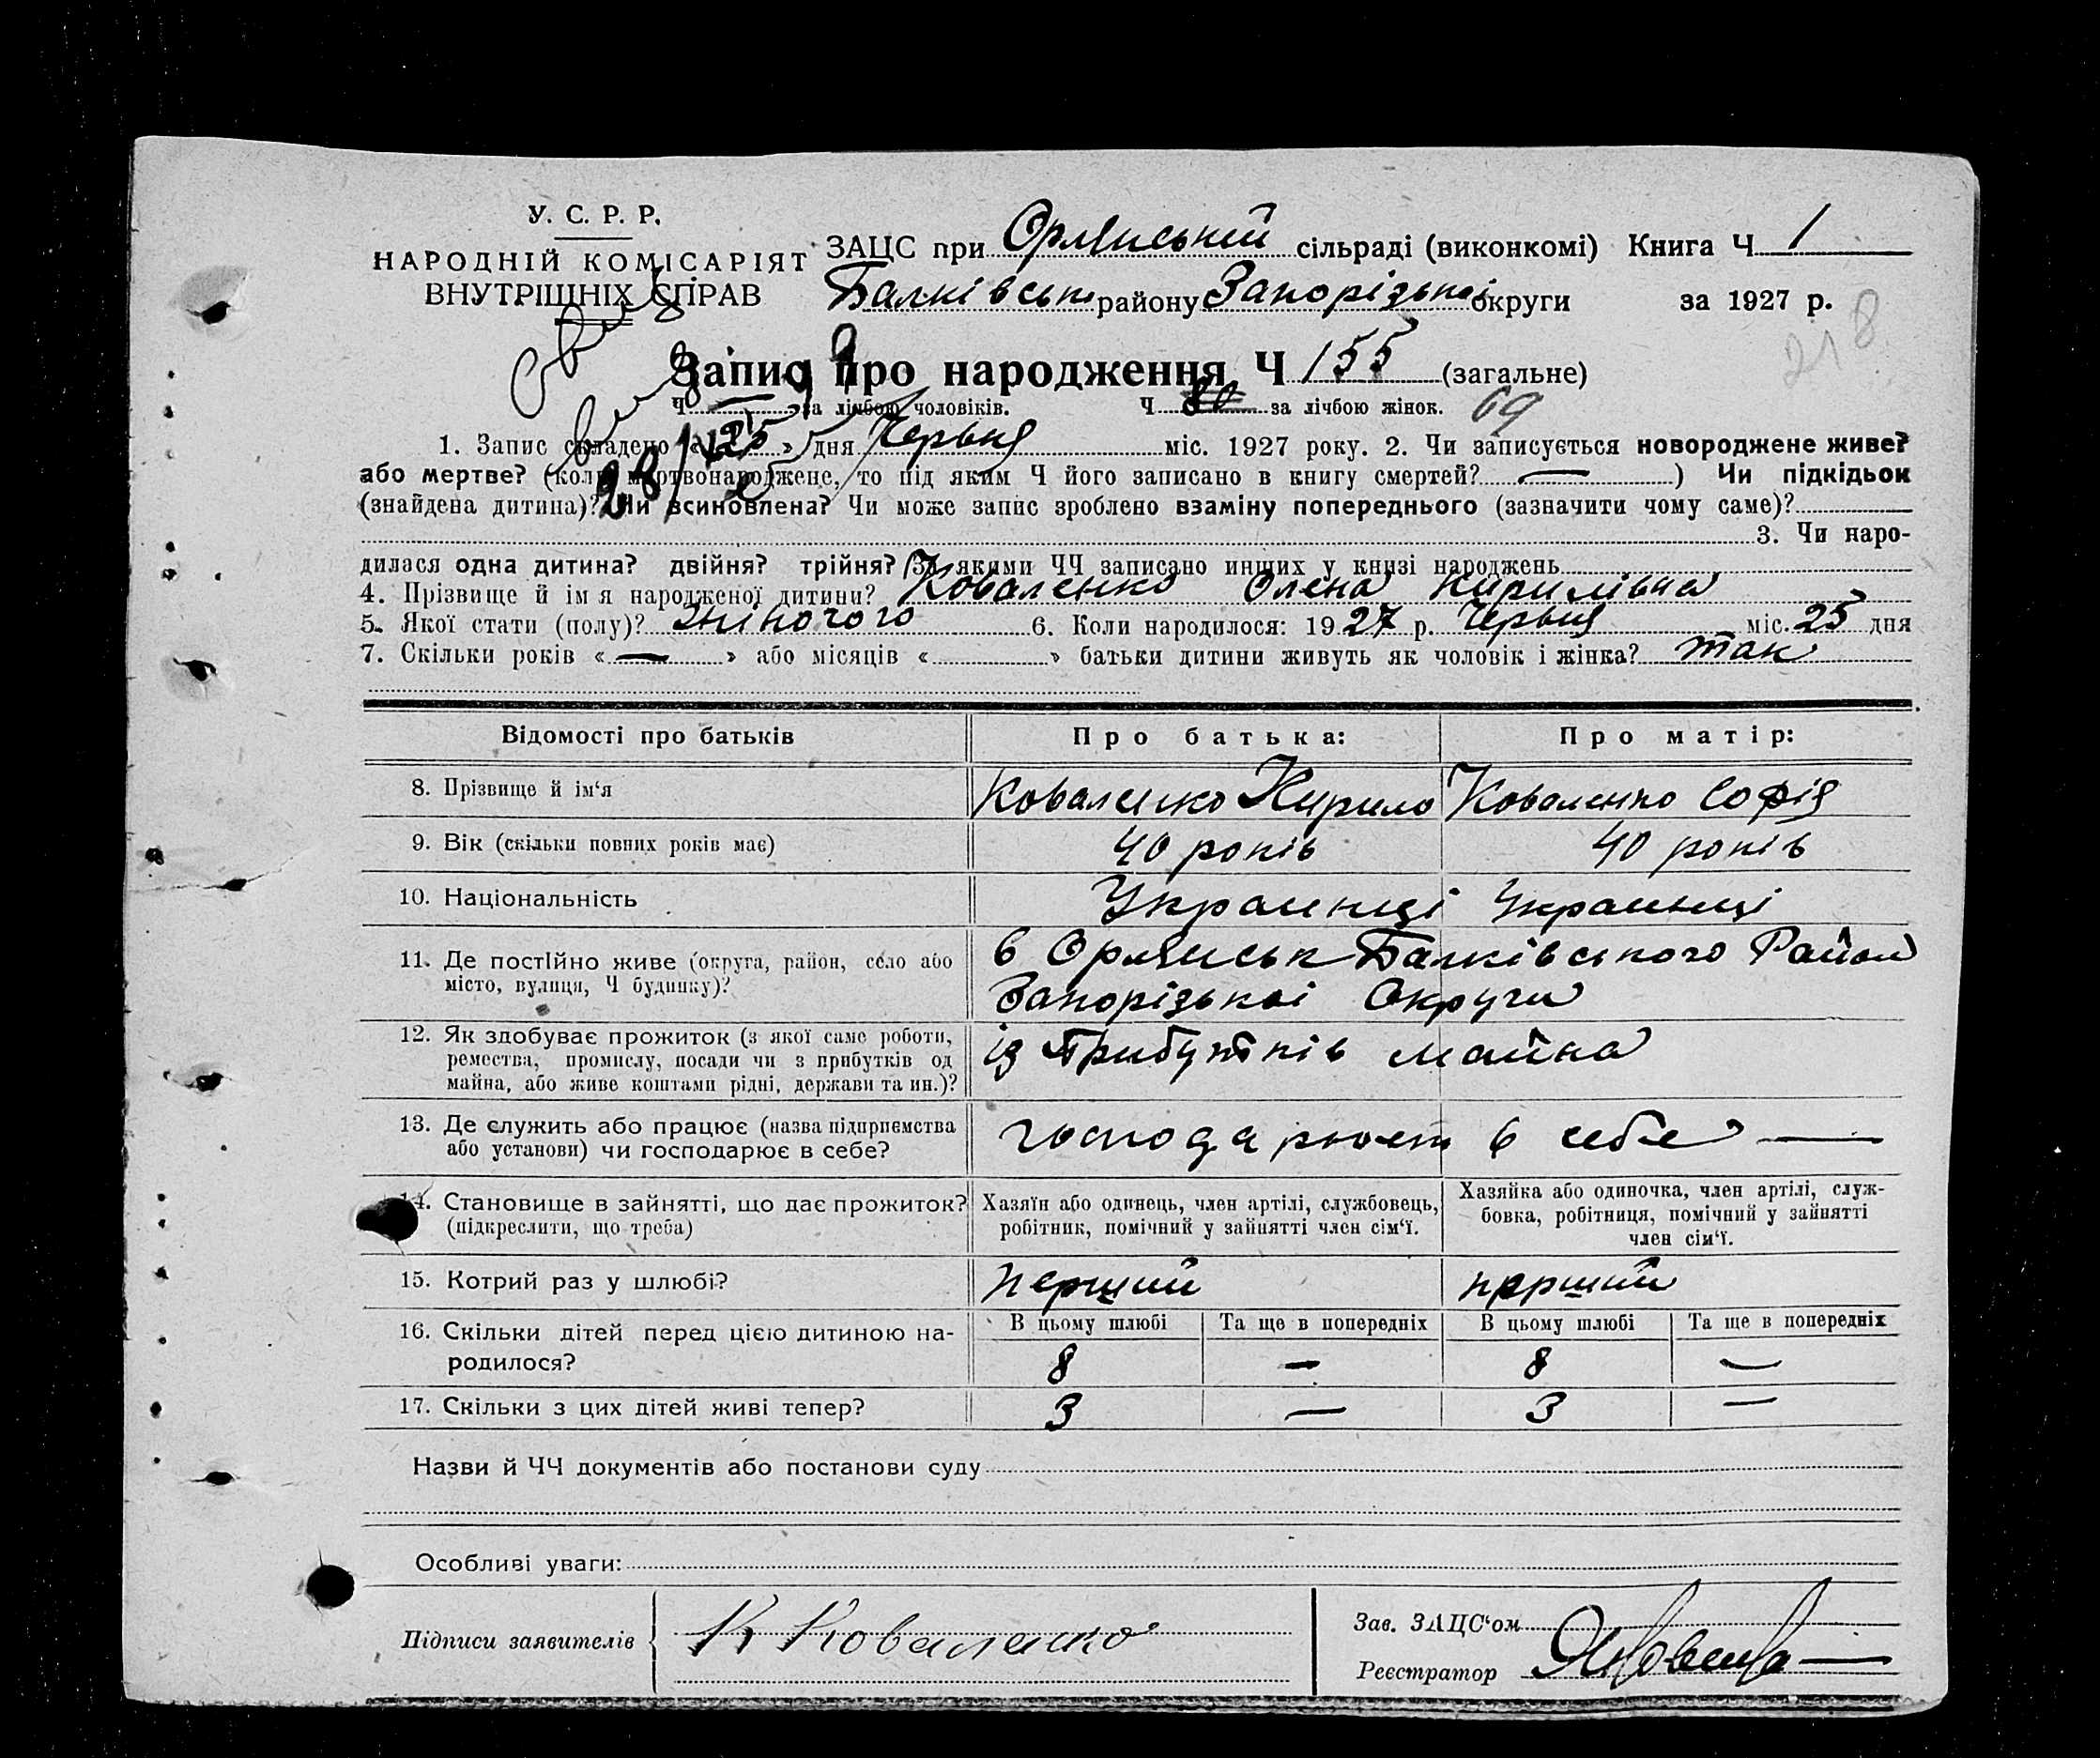 У. С. Р. Р.
НАРОДНІЙ КОМІСАРІЯТ
ВНУТРІШНІХ СПРАВ
ЗАЦС при Орлянській сільраді (виконкомі) Книга Ч 1
Балківськ району Запорізької округи за 1927 р.
218
Запис про народження Ч 155 (загальне)
Ч — за лічбою чоловіків. Ч 80 за лічбою жінок. 69
1. Запис складено « 25 » дня Червня міс. 1927 року. 2. Чи записується новороджене живе?
або мертве? (коли мертвонароджене, то під яким Ч його записано в книгу смертей? — ) Чи підкідьок
(знайдена дитина)? Чи всиновлена? Чи може запис зроблено взаміну попереднього (зазначити чому саме)?
3. Чи наро-
дилася одна дитина? двійня? трійня? (За якими ЧЧ записано инших у книзі народжень
4. Прізвище й ім я народженої дитини? Коваленко Олена Кирилівна
5. Якої стати (полу)? жіночого 6. Коли народилося: 1927 р. Червня міс. 25 дня
7. Скільки років « — » або місяців « » батьки дитини живуть як чоловік і жінка? так
Відомості про батьків Про батька: Про матір:
8. Прізвище й ім‘я Коваленко Кирило Коваленко Софія
9. Вік (скільки повних років має) 40 років 40 років
10. Національність Украинці Украинці
11. Де постійно живе (округа, район, село або в Орлянськ Балківського Район
місто, вулиця, Ч будинку)? Запорізькоі Округи
12. Як здобуває прожиток (з якої саме роботи, із Прибутків майна
ремества, промислу, посади чи з прибутків од
майна, або живе коштами рідні, держави та ин.)?
13. Де служить або працює (назва підприємства господарюєт в себе —
або установи) чи господарює в себе?
14. Становище в зайнятті, що дає прожиток? Хазяїн або одинець, член артілі, службовець, Хазяйка або одиночка, член артілі, служ-
(підкреслити, що треба) робітник, помічний у зайнятті член сім‘ї. бовка, робітниця, помічний у зайнятті
член сім‘ї.
15. Котрий раз у шлюбі? перший перший
16. Скільки дітей перед цією дитиною на- В цьому шлюбі Та ще в попередніх В цьому шлюбі Та ще в попередніх
родилося? 8 — 8 —
17. Скільки з цих дітей живі тепер? 3 — 3 —
Назви й ЧЧ документів або постанови суду
Особливі уваги:
Підписи заявителів К Коваленко
Зав. ЗАЦС‘ом
Реєстратор